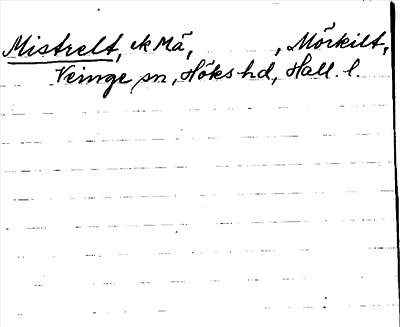 Mistrelt, ek Mä, , Mörkilt,
Veinge sn, Höks hd, Hall. l.